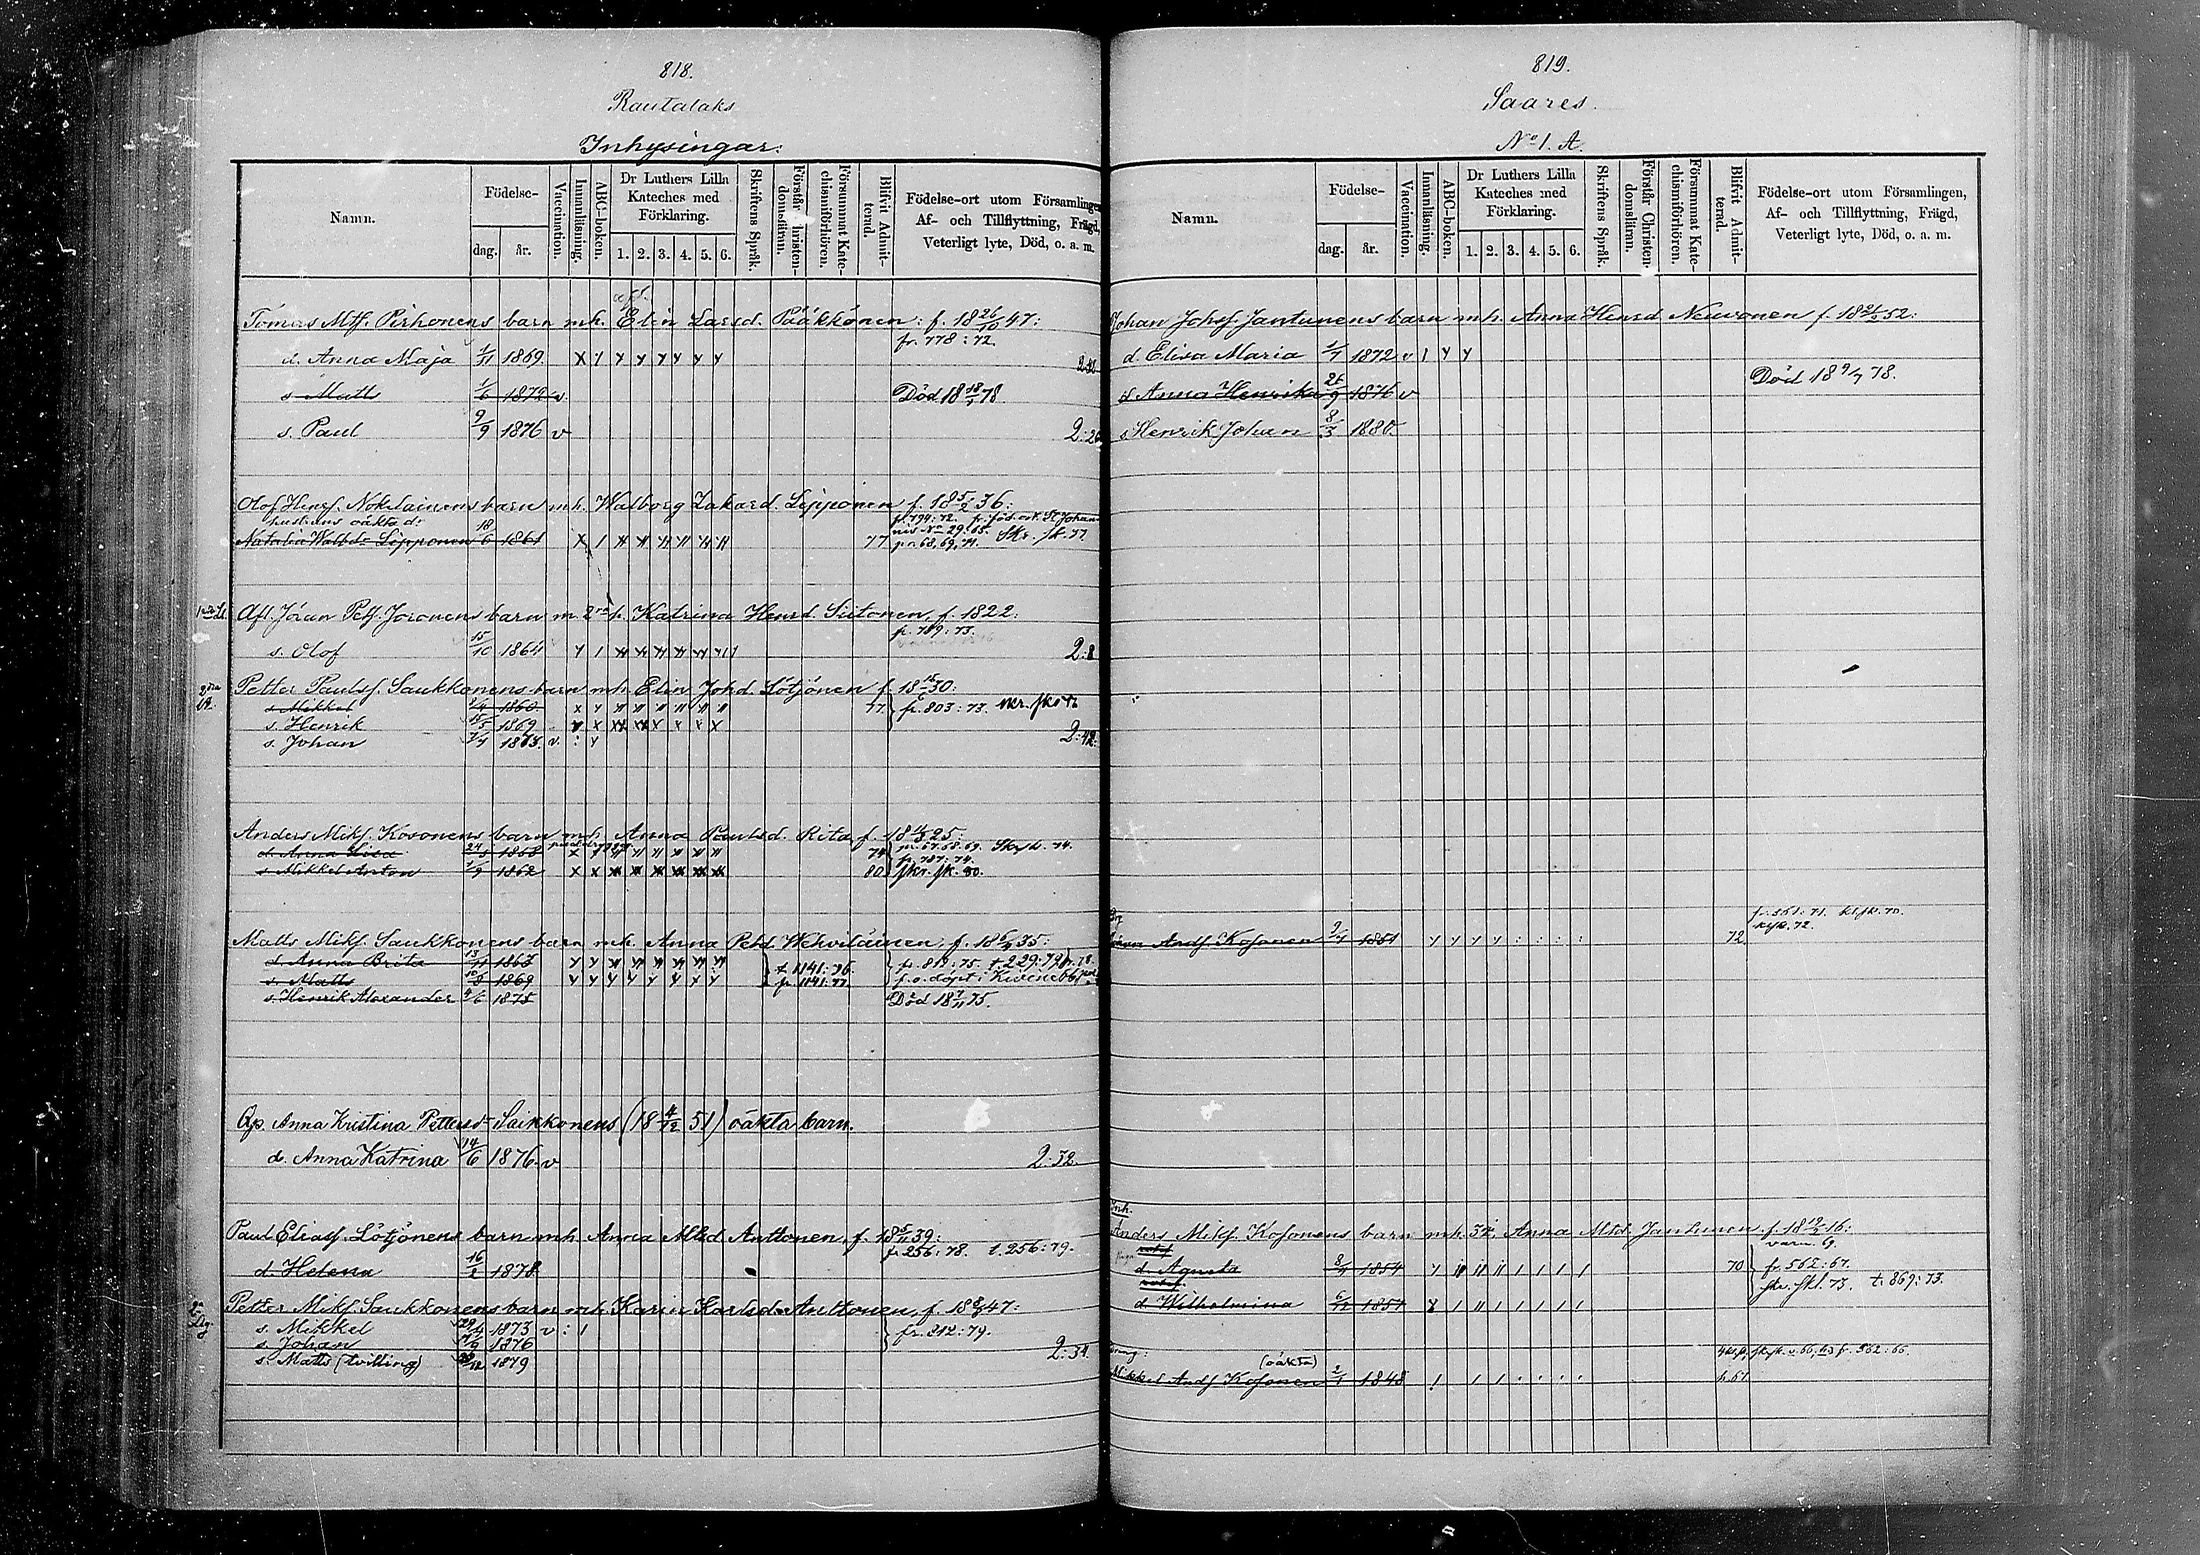 818.
Rautalaks
Inhysingar:
Namn.
Födelse-
dag.
år.
Vaccination.
Innanläsning.
ABC-boken.
Dr Luthers Lilla
Kateches med
Förklaring.
1. 2. 3. 4. 5. 6.
Skriftens Språk.
Förstår Christen-
domsläran.
Försummat Kate-
chismiförhören.
Blifvit Admit-
terad.
Födelse-ort utom Församlingen,
Af- och Tillflyttning, Frägd,
Veterligt lyte, Död, o. a. m.
Tomas Mttf. Pirhonens barn mh. Elin Larsd. Pääkkönen: f. 18 26/10 47:
fr. 778:72.
d. Anna Maja 1/11 1869 x y y y y y y y
s Matts 1/6 1872 v Död 18 18/1 78
s. Paul 9/9 1876 v 2:26
Olof Henrf. Nokelainens barn mh. Walborg Zakard. Lipponen f. 18 5/2 36:
hustruns oäkta d:
fr. 794:72.
Natalia Walbd Lipponen 18/6 1861 77 Skr. sk. 77
pr. 68, 69, 71.
Afl. Jöran Petf. Joronens barn m. 2ra h. Katrina Henrd. Siitonen, f. 1822:
fr. 789:73.
s. Olof 15/10 1864 2:8
Petter Paulsf. Saukkonens barn mh. Elin Johd. Lötjönen f. 18 15/6 30:
s Mikkel 1/4 1860 77 fr. 803:73.
s. Henrik 15/5 1869
s. Johan 3/4 1873. v. 2:42
Anders Mikf. Kosonens barn mh. Anna Paulsd. Rita, f. 18 25:
d. Anna Lisa 24/5 1858 74 pr. 67.68.69. Skrsk. 74.
fr. 787:74.
s Mikkel Anton 1/9 1862 80 skr. sk. 80.
Matts Mikf. Saukkonens barn mh. Anna Petd. Wehviläinen, f. 18 6/9 35:
d. Anna Brita 13/11 1863 t. 1141:76. fr. 819:75. t. 229:79
s. Matts 10/8 1869 fr 1141:77.
s. Henrik Alexander 4/6 1875 Död 18 7/11 75.
Qp. Anna Kristina Pettersd Saikkonens (18 4/12 51) oäkta barn.
d. Anna Katrina 14/6 1876 v 2:32.
Paul Eliasf Lötjönens barn mh. Anna Mttd Anttonen, f. 18 5/11 39:
fr. 256:78. t. 256:79.
d. Helena 16/2 1878
Petter Mikf. Saukkonens barn mh. Karin Karlsd. Anttonen, f. 18 47:
s. Mikkel 29/4 1873 v : 1 fr. 212:79.
s. Johan 1876
s. Matts (tvilling) 1879 2:34.
819.
Saares.
No 1. A.
Namn.
Födelse-
dag.
år.
Vaccination.
Innanläsning.
ABC-boken.
Dr Luthers Lilla
Kateches med
Förklaring.
1. 2. 3. 4. 5. 6.
Skriftens Språk.
Förstår Christen-
domsläran.
Försummat Kate-
chismiförhören.
Blifvit Admit-
terad.
Födelse-ort utom Församlingen,
Af- och Tillflyttning, Frägd,
Veterligt lyte, Död, o. a. m.
Johan Johsf. Jantunens barn mh. Anna Henrd Neuvonen f. 18 52:
d. Elisa Maria 1/7 1872 v 1 y y
s Anna Henrika 26/9 1876 v Död 18 9/7 78.
s Henrik Johan 8/3 1880.
fr. 561:71.
Andf Kosonen 9/7 1851 72
Inh.
Anders Mikf. Kosonens barn mh. 3je: Anna Mttd Jantunen f. 18 19/2 16:
d. Agneta 8/7 1854 70 fr. 562:67.
skr. skl. 73. t. 869:73.
d Wilhelmina 6/12 1857
(oäkta)
Mikkel Andf Kosonen 2/1 1848